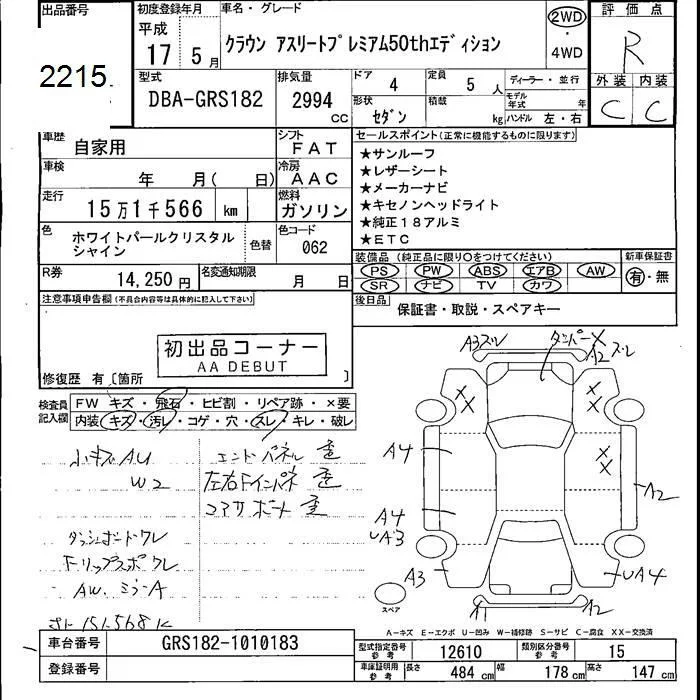 出品番号 初度登録年月 車名・グレード 2WD 評価点
平成 17年 5月 クラウン アスリートプレミアム50thエディション ・ R
2215 4WD
型式 排気量 ドア 4 定員 5人 ディーラー・並行 外装 内装
DBA-GRS182 2994 CC 形状 セダン 積載 kg モデル年式 年 C C
ハンドル 左・右
車歴 自家用 シフト FAT セールスポイント(正常に機能するものに限ります)
車検 年 月( 日) 冷房 AAC ★サンルーフ
★レザーシート
走行 15万1千566 km 燃料 ガソリン ★メーカーナビ
★キセノンヘッドライト
色 ホワイトパールクリスタルシャイン 色替 色コード 062 ★純正18アルミ
★ETC
R券 14,250円 名変通知期限 月 日 装備品(純正品に限り○をつけてください) 新車保証書
PS PW ABS エアB AW 有・無
SR ナビ TV カワ
注意事項申告欄(不具合内容等は具体的に記入して下さい) 後日品 保証書・取説・スペアキー
初出品コーナー
AA DEBUT
修復歴 有〔箇所 〕
検査員記入欄 FW キズ・飛石・ヒビ割・リペア跡・×要
内装 キズ・汚レ・コゲ・穴・スレ・キレ・破レ
小キズAU エンドパネル歪
W2 左右Fインパネ歪
コアサポート歪
ダッシュボードワレ
AW.ミラーA
A3 ズレ ダンパーX A2 ズレ
X X X X
A4 A2
A4
UA3
A3 UA4
スペア A1 A2
A-キズ E-エクボ U-凹み W-補修跡 S-サビ C-腐食 XX-交換済
車台番号 GRS182-1010183 型式指定番号 参考 12610 類別区分番号 参考 15
登録番号 車庫証明用 参考 長さ 484 cm 幅 178 cm 高さ 147 cm